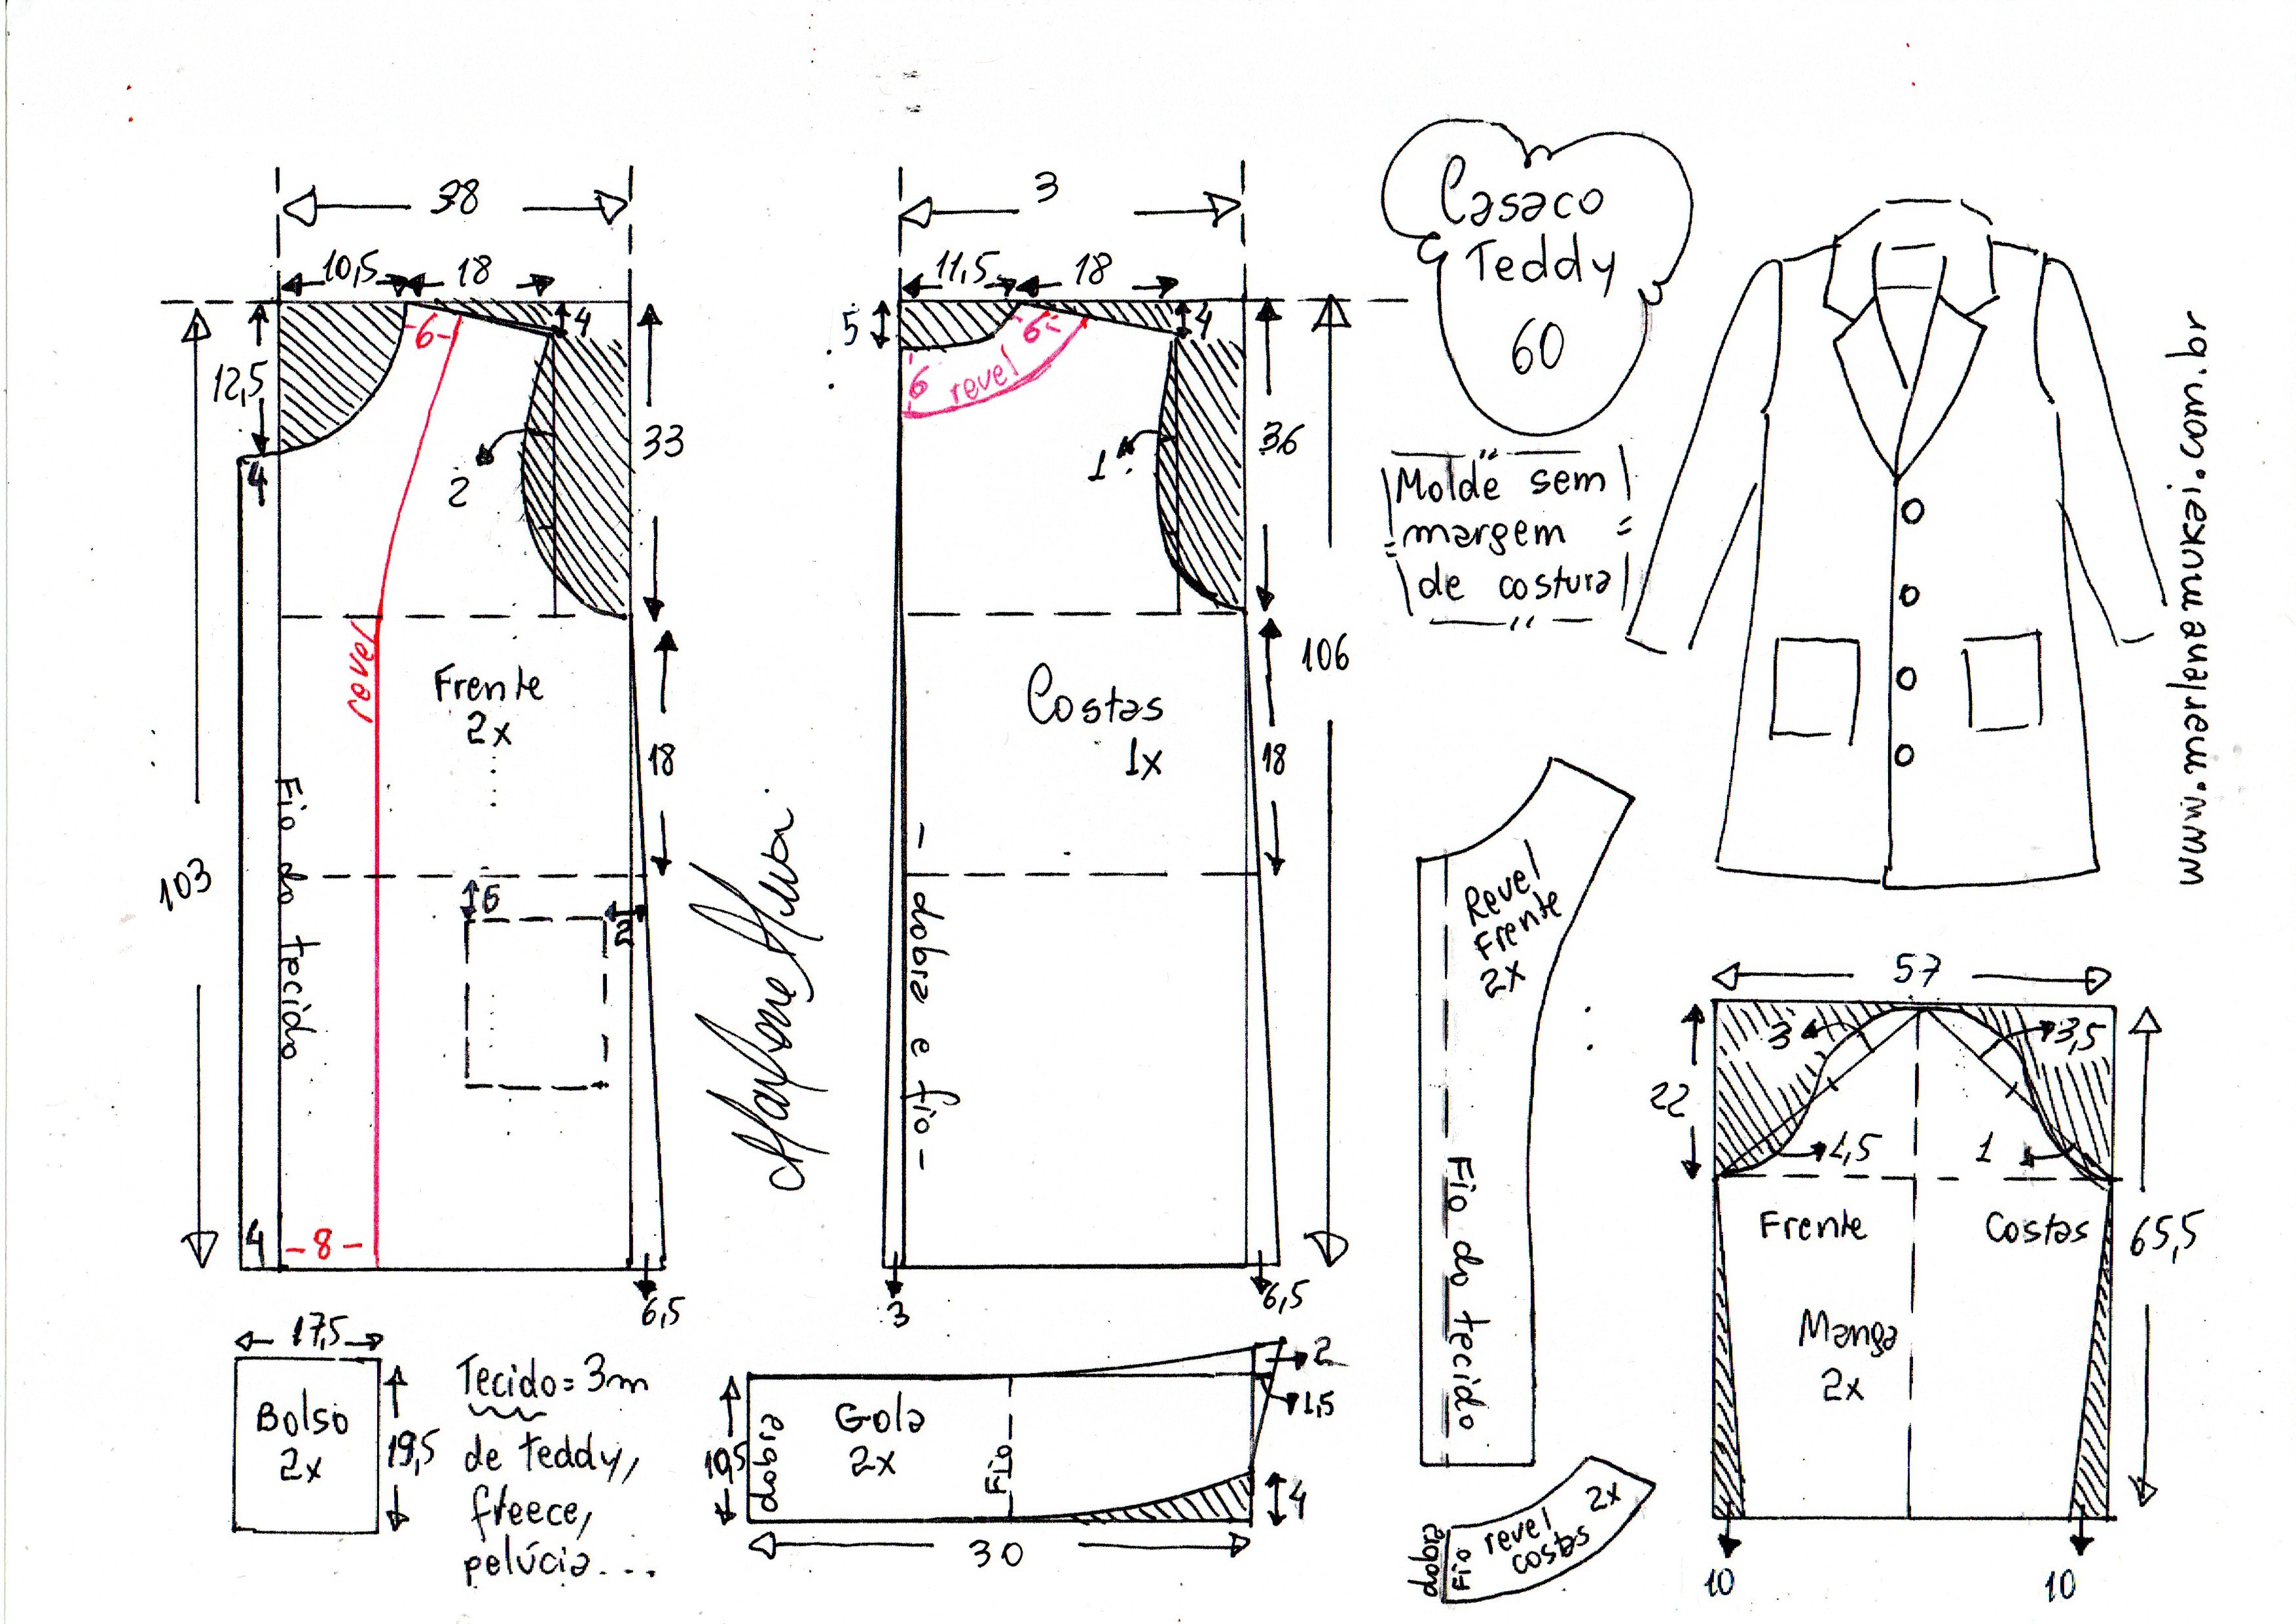 38
10,5
18
4
-6-
12,5
4
2
33
revel
Frente
2x
18
103
Fio do tecido
6
2
4
-8-
6,5
3
11,5
18
5
4
6
6
revel
1
36
Costas
1x
106
18
- dobra e fio -
3
6,5
Casaco
Teddy
60
Molde sem
margem
de costura
www.marlenemukai.com.br
Marlene Mukai
17,5
Bolso
2x
19,5
Tecido = 3m
de teddy,
freece,
pelúcia...
10,5
dobra
Gola
2x
Fio
2
1,5
4
30
Revel
Frente
2x
Fio do tecido
dobra
Fio
revel
costas
2x
57
22
3
3,5
1,5
1
Frente
Costas
65,5
Manga
2x
10
10